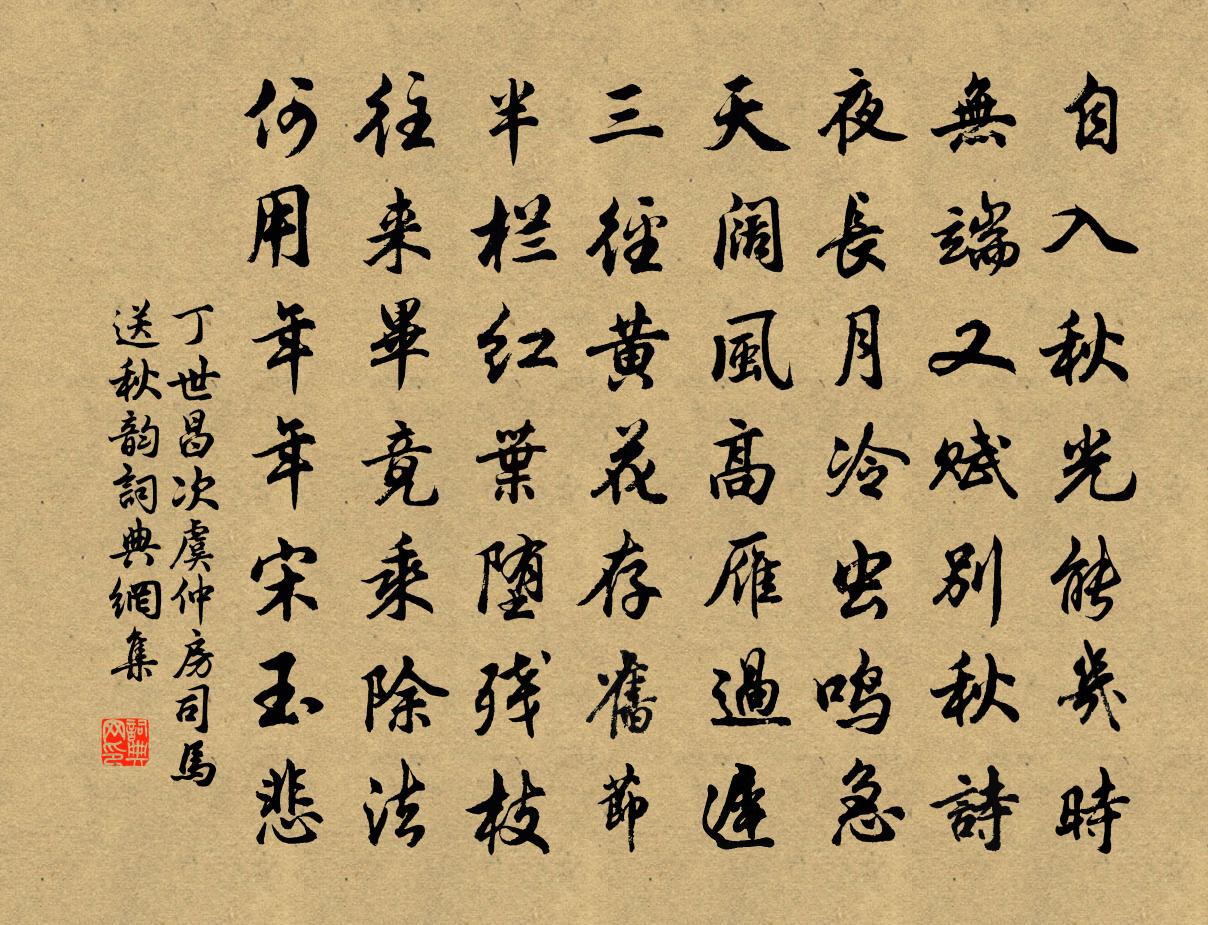 自入秋光能幾時
無端又賦別秋詩
夜長月冷虫鳴急
天闊風高雁過遲
三徑黃花存舊節
半栏红葉堕残枝
往来畢竟乘除法
何用年年宋玉悲
丁世昌次虞仲房司馬
送秋韵詞典網集
詞典
网印